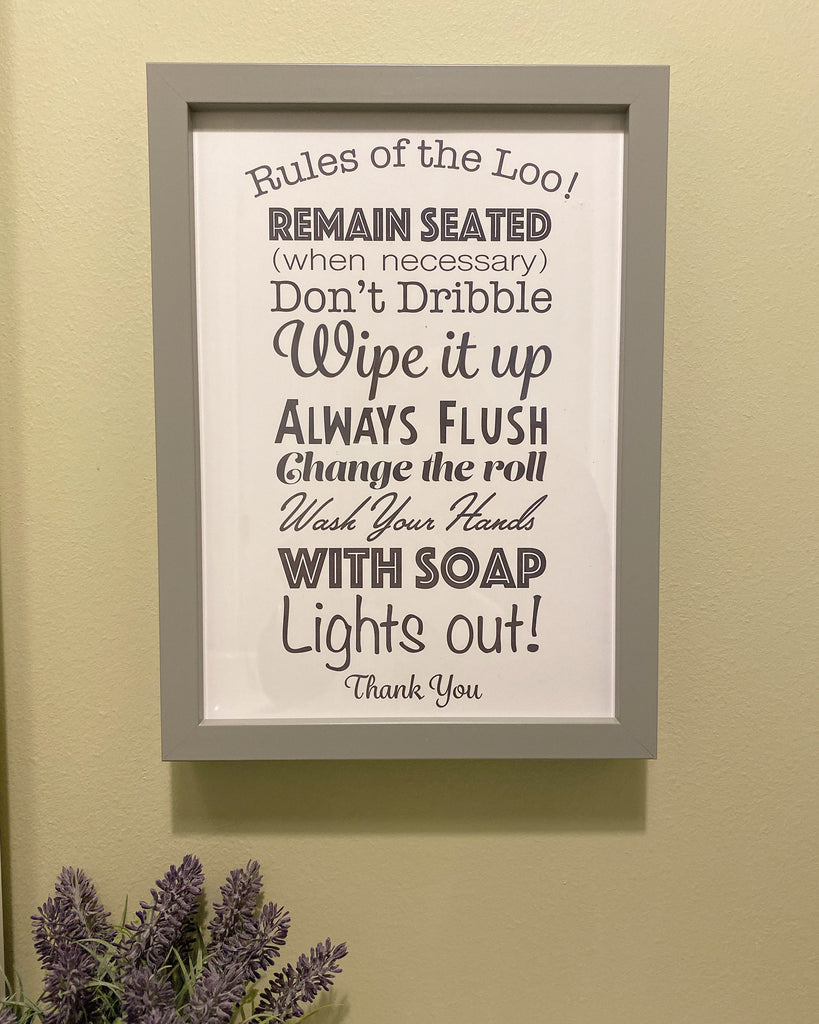 Rules of the Loo!
REMAIN SEATED
(when necessary)
Don't Dribble
Wipe it up
ALWAYS FLUSH
Change the roll
Wash Your Hands
WITH SOAP
Lights out!
Thank You